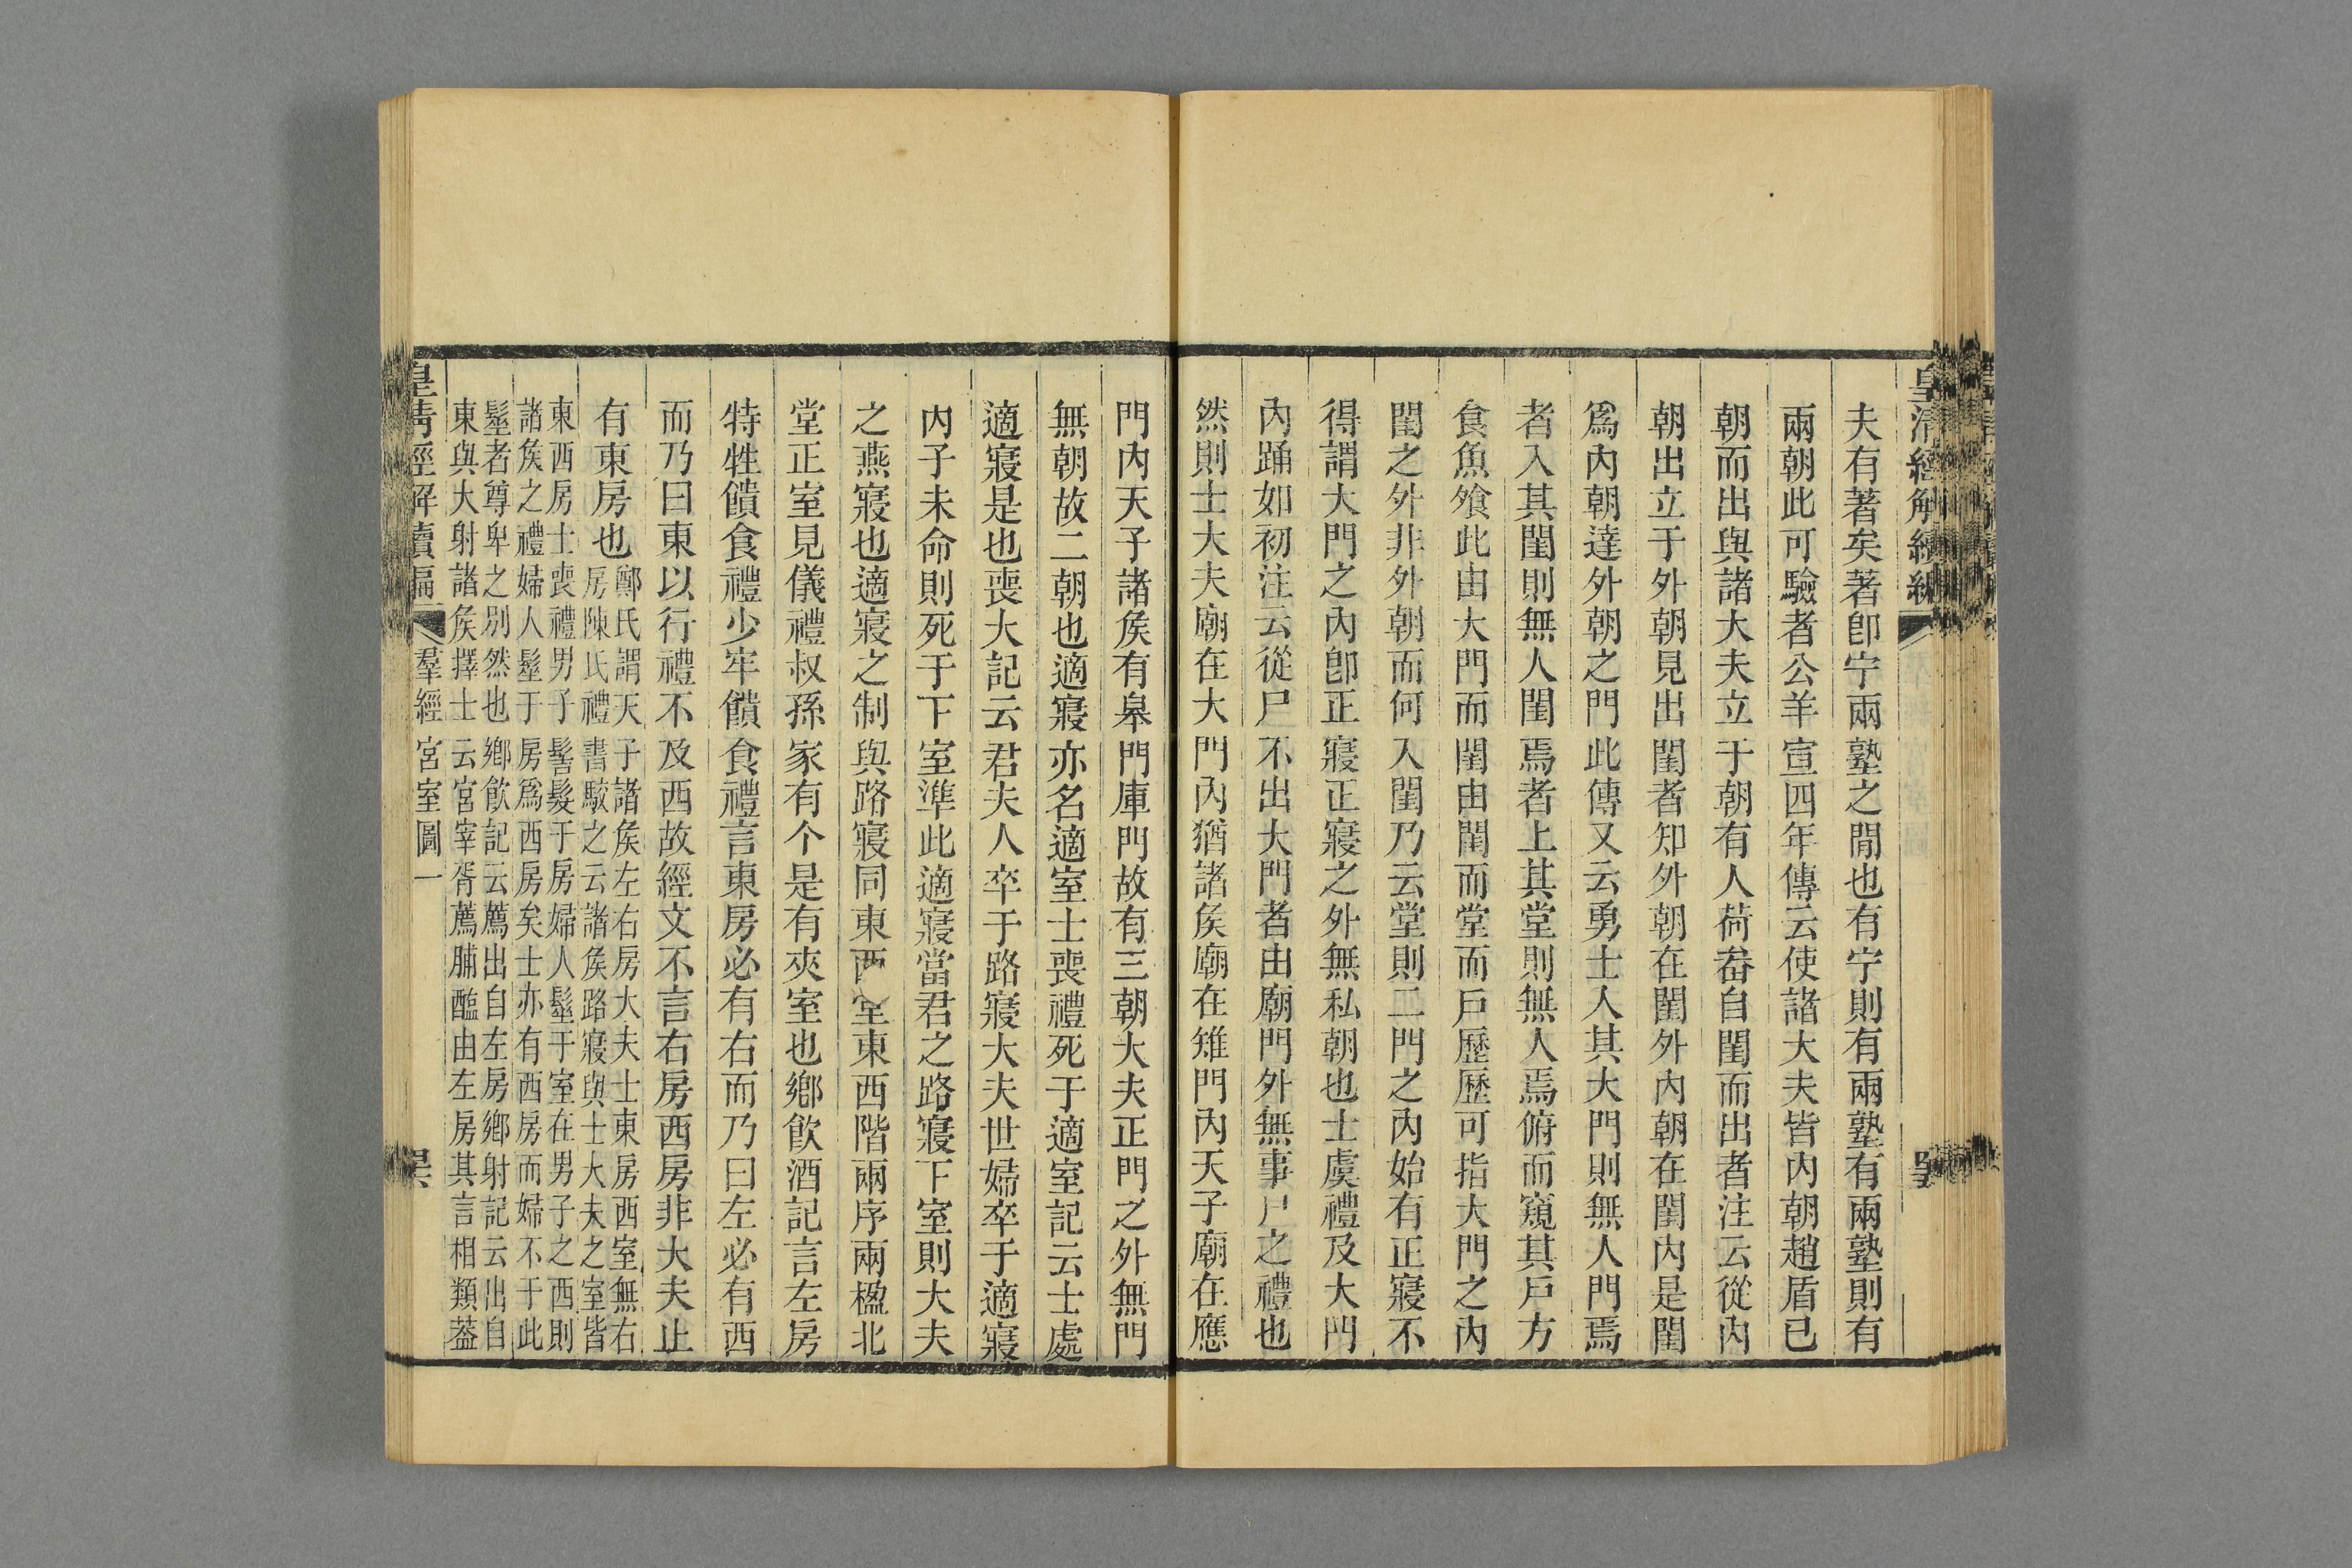 皇清經解續編
夫有著矣著卽宁兩塾之閒也有宁則有兩塾有兩塾則有
兩朝此可驗者公羊宣四年傳云使諸大夫皆內朝趙盾已
朝而出與諸大夫立于朝有人荷畚自閨而出者注云從內
朝出立于外朝見出閨者知外朝在閨外內朝在閨內是閨
爲內朝達外朝之門此傳又云勇士入其大門則無人門焉
者入其閨則無人閨焉者上其堂則無人焉俯而窺其戶方
食魚飧此由大門而閨由閨而堂而戶歷歷可指大門之內
閨之外非外朝而何入閨乃云堂則二門之內始有正寢不
得謂大門之內卽正寢正寢之外無私朝也士虞禮及大門
內踊如初注云從尸不出大門者由廟門外無事尸之禮也
然則士大夫廟在大門內猶諸矦廟在雉門內天子廟在應
門內天子諸矦有皋門庫門故有三朝大夫正門之外無門
無朝故二朝也適寢亦名適室士喪禮死于適室記云士處
適寢是也喪大記云君夫人卒于路寢大夫世婦卒于適寢
內子未命則死于下室準此適寢當君之路寢下室則大夫
之燕寢也適寢之制與路寢同東西堂東西階兩序兩楹北
堂正室見儀禮叔孫家有个是有夾室也鄉飲酒記言左房
特牲饋食禮少牢饋食禮言東房必有右而乃曰左必有西
而乃曰東以行禮不及西故經文不言右房西房非大夫止
有東房也鄭氏謂天子諸矦左右房大夫士東房西室無右
房陳氏禮書駁之云諸矦路寢與士大夫之室皆
東西房士喪禮男子髻髮于房婦人髽于室在男子之西則
諸矦之禮婦人髽于房爲西房矣士亦有西房而婦不于此
髽者尊卑之別然也鄉飲記云薦出自左房鄉射記云出自
東與大射諸矦擇士云宮宰胥薦脯醢由左房其言相類葢
皇清經解續編
羣經宮室圖一